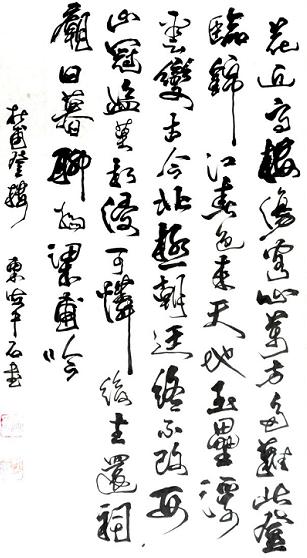 花近高樓傷客心萬方多難此登
臨錦江春色來天地玉壘浮
雲變古今北極朝廷終不改西
山寇盜莫相侵可憐後主還祠
廟日暮聊為梁甫吟
杜甫登樓 東 石書